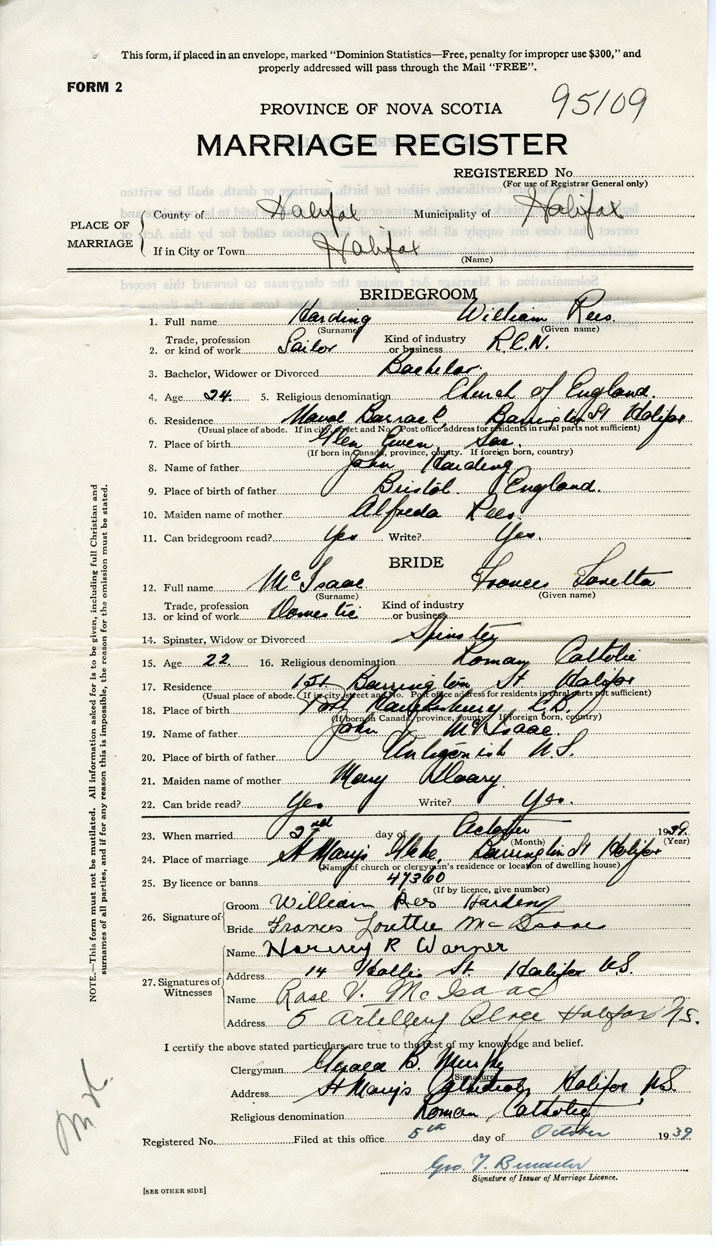 This form, if placed in an envelope, marked "Dominion Statistics—Free, penalty for improper use $300," and
properly addressed will pass through the Mail "FREE".
FORM 2
95109
PROVINCE OF NOVA SCOTIA
MARRIAGE REGISTER
REGISTERED No.
(For use of Registrar General only)
PLACE OF MARRIAGE
County of Halifax Municipality of Halifax
If in City or Town Halifax
(Name)
BRIDEGROOM
1. Full name Harding William Rees
(Surname) (Given name)
2. Trade, profession or kind of work Sailor Kind of industry or business R.C.N.
3. Bachelor, Widower or Divorced Bachelor
4. Age 24. 5. Religious denomination Church of England.
6. Residence Naval Barrack, Barrington St Halifax
(Usual place of abode. If in city, street and No. Post office address for residents in rural parts not sufficient)
7. Place of birth Glen Ewen, Sas.
(If born in Canada, province, county. If foreign born, country)
8. Name of father John Harding
9. Place of birth of father Bristol England.
10. Maiden name of mother Alfreda Rees
11. Can bridegroom read? Yes Write? Yes.
BRIDE
12. Full name McIsaac Frances Loretta
(Surname) (Given name)
13. Trade, profession or kind of work Domestic Kind of industry or business
14. Spinster, Widow or Divorced Spinster
15. Age 22. 16. Religious denomination Roman Catholic
17. Residence 151 Barrington St Halifax
(Usual place of abode. If in city, street and No. Post office address for residents in rural parts not sufficient)
18. Place of birth Port Hawkesbury C.B.
(If born in Canada, province, county. If foreign born, country)
19. Name of father John J McIsaac.
20. Place of birth of father Antigonish N.S.
21. Maiden name of mother Mary
22. Can bride read? Yes Write? Yes.
23. When married 2nd day of October 1939.
(Month) (Year)
24. Place of marriage St Mary's Glebe, Barrington St Halifax
(Name of church or clergyman's residence or location of dwelling house)
25. By licence or banns 47360
(If by licence, give number)
26. Signature of
Groom William Rees Harding
Bride Frances McIsaac
27. Signatures of Witnesses
Name R Warner
Address 14 Hollis St. Halifax N.S.
Name Rose V. McIsaac
Address 5 Artillery Place Halifax N.S.
I certify the above stated particulars are true to the best of my knowledge and belief.
Clergyman Gerald B. Murphy
(Signature)
Address St Mary's Cathedral Halifax N.S.
Religious denomination Roman Catholic
Registered No. Filed at this office 5th day of October 1939
Geo. T.
Signature of Issuer of Marriage Licence.
[SEE OTHER SIDE]
NOTE.—This form must not be mutilated. All information asked for is to be given, including full Christian and
surnames of all parties, and if for any reason this is impossible, the reason for the omission must be stated.